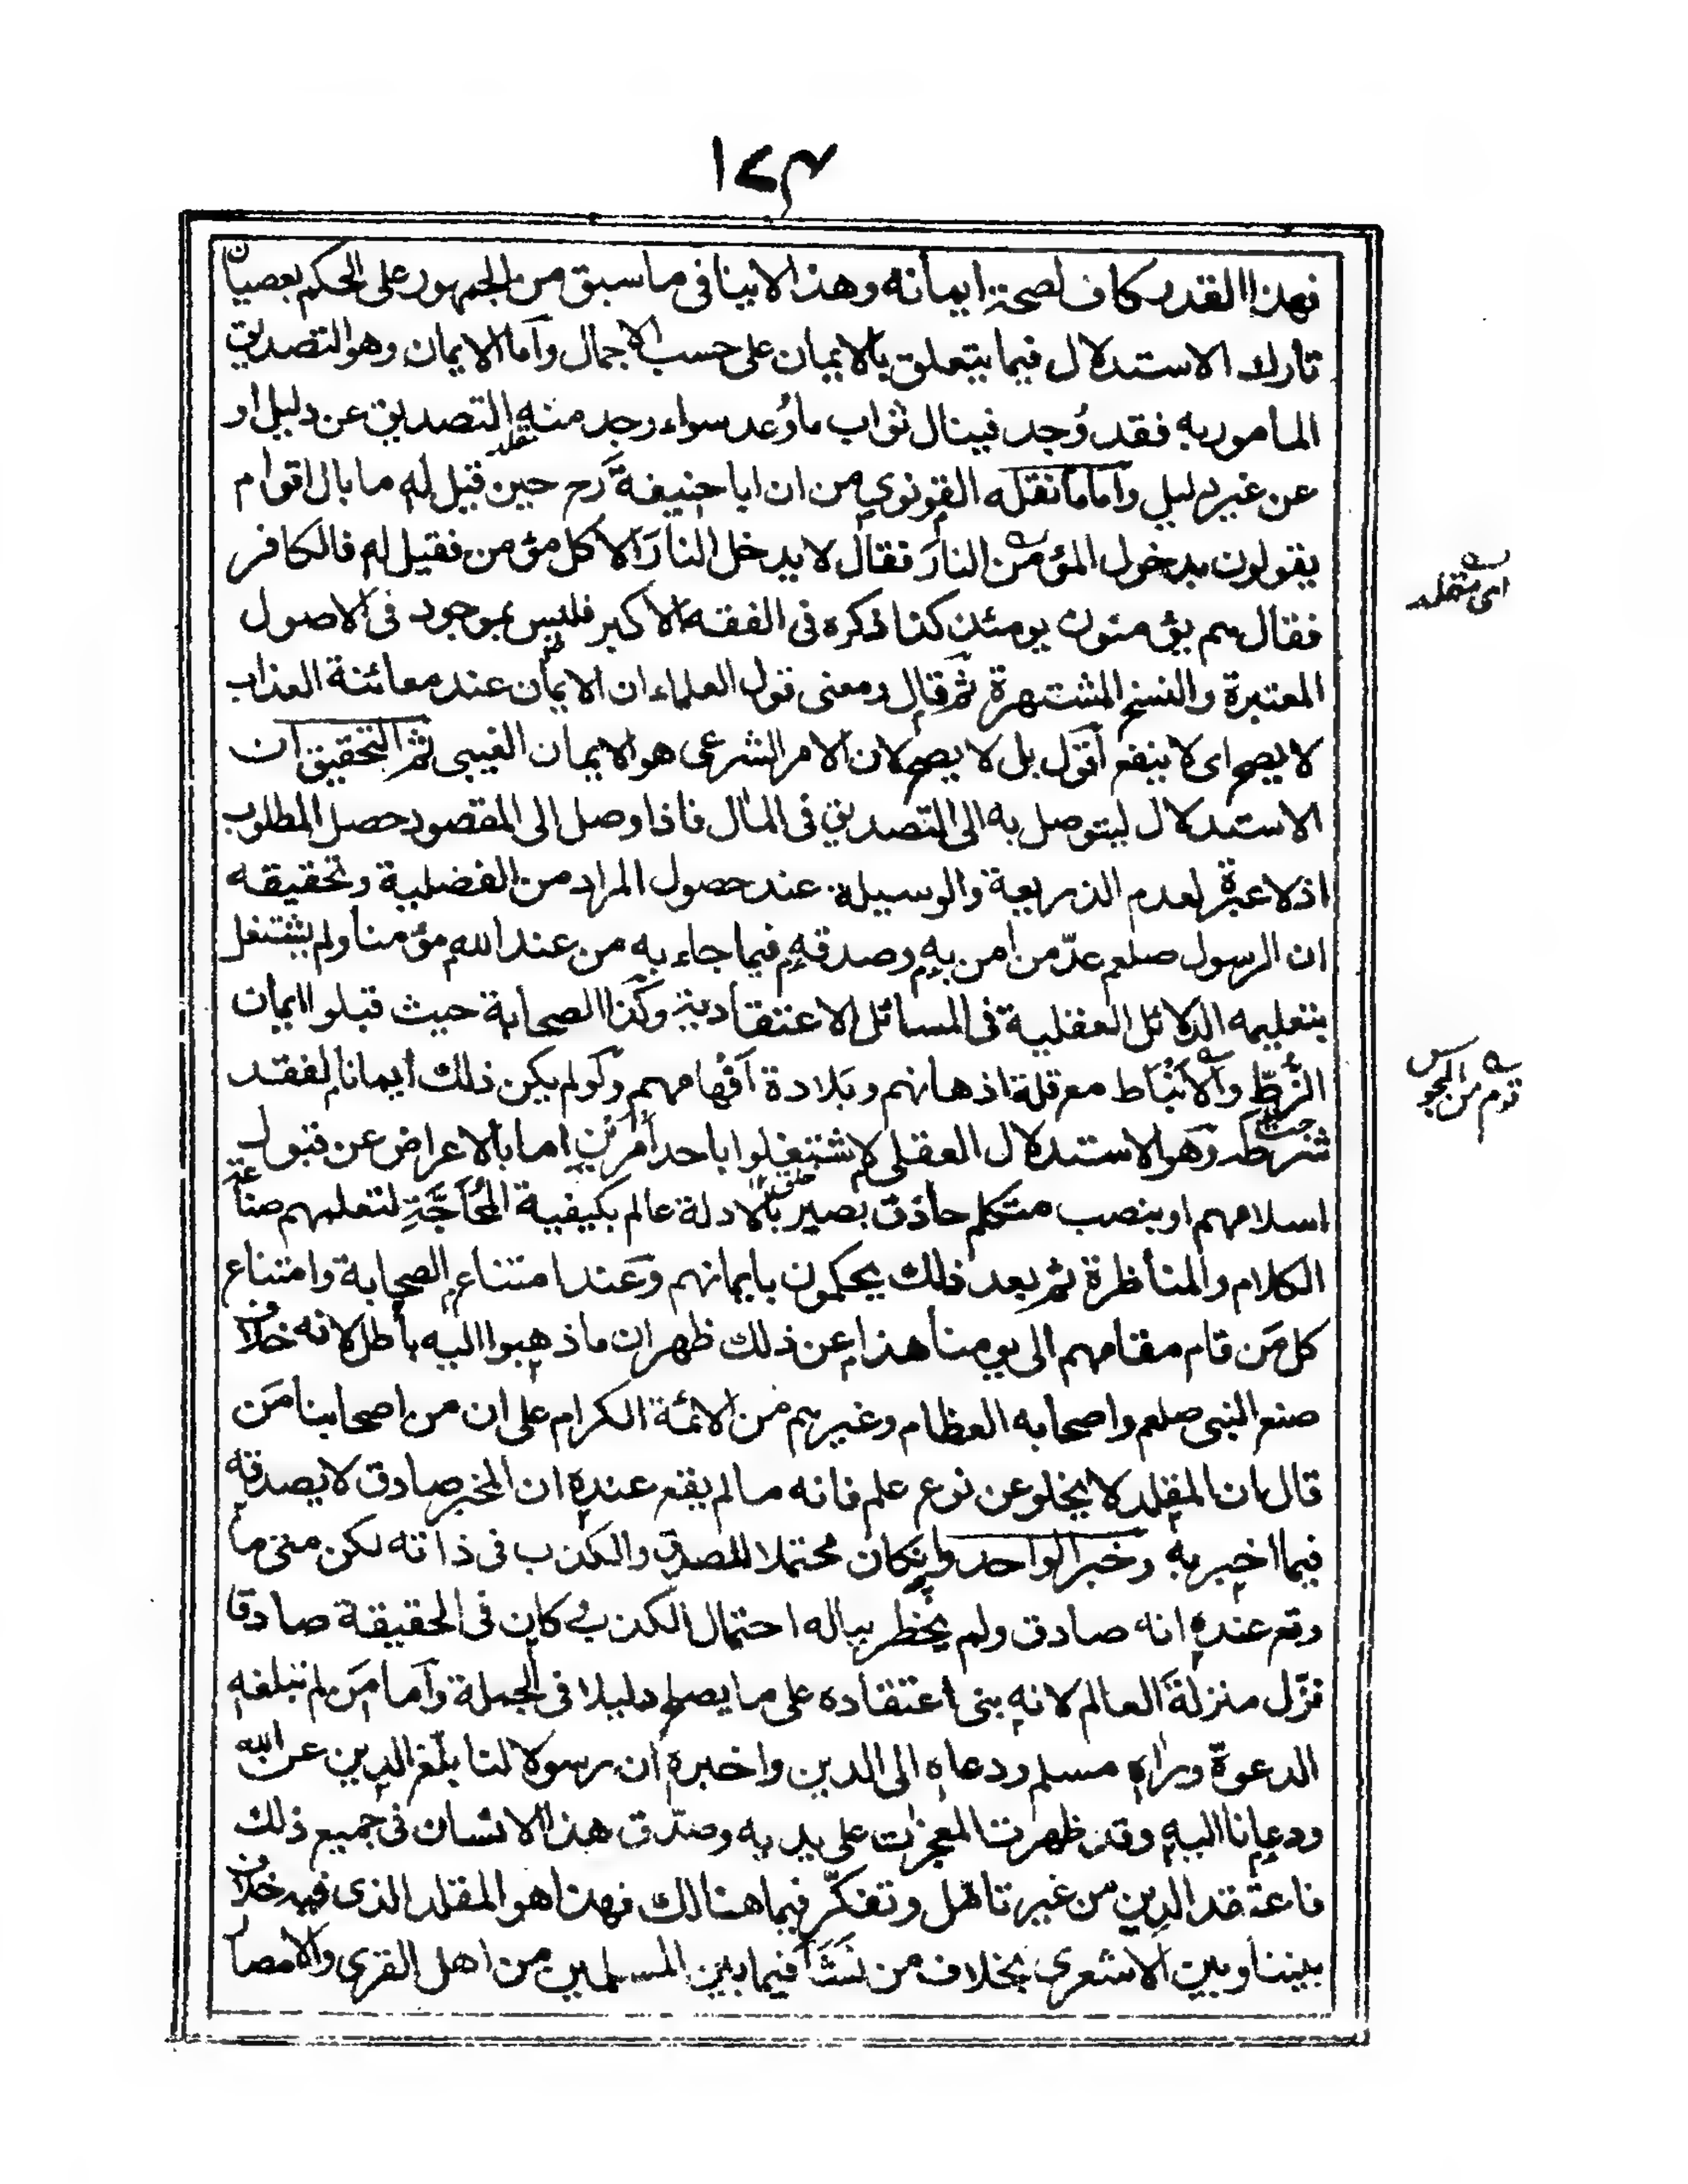 ١٧٣
فهذا القدر كاف لصحة ايمانه وهذا لا ينافى ما سبق من الجمهور على الحكم بعصيان
تارك الاستدلال فيما يتعلق بالايمان على حسب الاجمال وأما الايمان وهو التصديق
المامور به فقد وُجد فينال ثواب ما وُعد سواء وجد منه التصديق عن دليل او
عن غير دليل وأما ما نقله القونوى من ان ابا حنيفة رح حين قيل له ما بال اقوام
يقولون بدخول المؤمن النار فقال لا يدخل النار الا كل مؤمن فقيل له فالكافر
فقال هم يؤمنون يومئذ كذا ذكره فى الفقه الاكبر فليس بموجود فى الاصول
المعتبرة والنسخ المشتهرة ثم قال ومعنى قول العلماء ان الايمان عند معائنة العذاب
لا يصح اى لا ينفع أقول بل لا يصح لان الامر الشرعى هو الايمان الغيبى ثم التحقيق ان
الاستدلال ليتوصل به الى التصديق فى المآل فاذا وصل الى المقصود حصل المطلوب
اذ لا عبرة لعدم الذريعة والوسيلة عند حصول المراد من الفضلية وتحقيقه
ان الرسول صلعم عدّ من امن به وصدقه فيما جاء به من عند الله مؤمنا ولم يشتغل
بتعليمه الدلائل العقلية فى المسائل الاعتقادية وكذا الصحابة حيث قبلوا ايمان
الزُّطّ والأنباط مع قلة اذهانهم وبلادة افهامهم ولو لم يكن ذلك ايمانا لفقد
شرطه وهو الاستدلال العقلى لاشتغلوا باحد أمرين اما بالاعراض عن قبول
اسلامهم او بنصب متكلم حاذق بصير بالادلة عالم بكيفية المُحاجَّة لتعلمهم صناعة
الكلام والمناظرة ثم بعد ذلك يحكمون بايمانهم وعند امتناع الصحابة وامتناع
كل مَن قام مقامهم الى يومنا هذا عن ذلك ظهر ان ما ذهبوا اليه باطل لانه خلاف
صنع النبى صلعم واصحابه العظام وغيرهم من الائمة الكرام على ان من اصحابنا مَن
قال ان المقلد لا يخلو عن نوع علم فانه ما لم يقع عنده ان المخبر صادق لا يصدقه
فيما اخبر به وخبر الواحد وانكان محتملا للصدق والكذب فى ذاته لكن متى ما
وقع عنده انه صادق ولم يخطر بباله احتمال الكذب كان فى الحقيقة صادقا
نزّل منزلة العالم لانه بنى اعتقاده على ما يصلح دليلا فى الجملة وأما مَن لم تبلغه
الدعوة وراه مسلم ودعاه الى الدين واخبره ان رسولا لنا بلّغ الدين عن الله
ودعانا اليه وقد ظهرت المعجزات على يديه وصدّق هذا الانسان فى جميع ذلك
فاعتقد الدين من غير تامّل وتفكّر فيما هنالك فهذا هو المقلد الذى فيه خلاف
بيننا وبين الاشعرى بخلاف من نَشَأ فيما بين المسلمين من اهل القرى والامصا
اى مقلد
قوم من المجوس